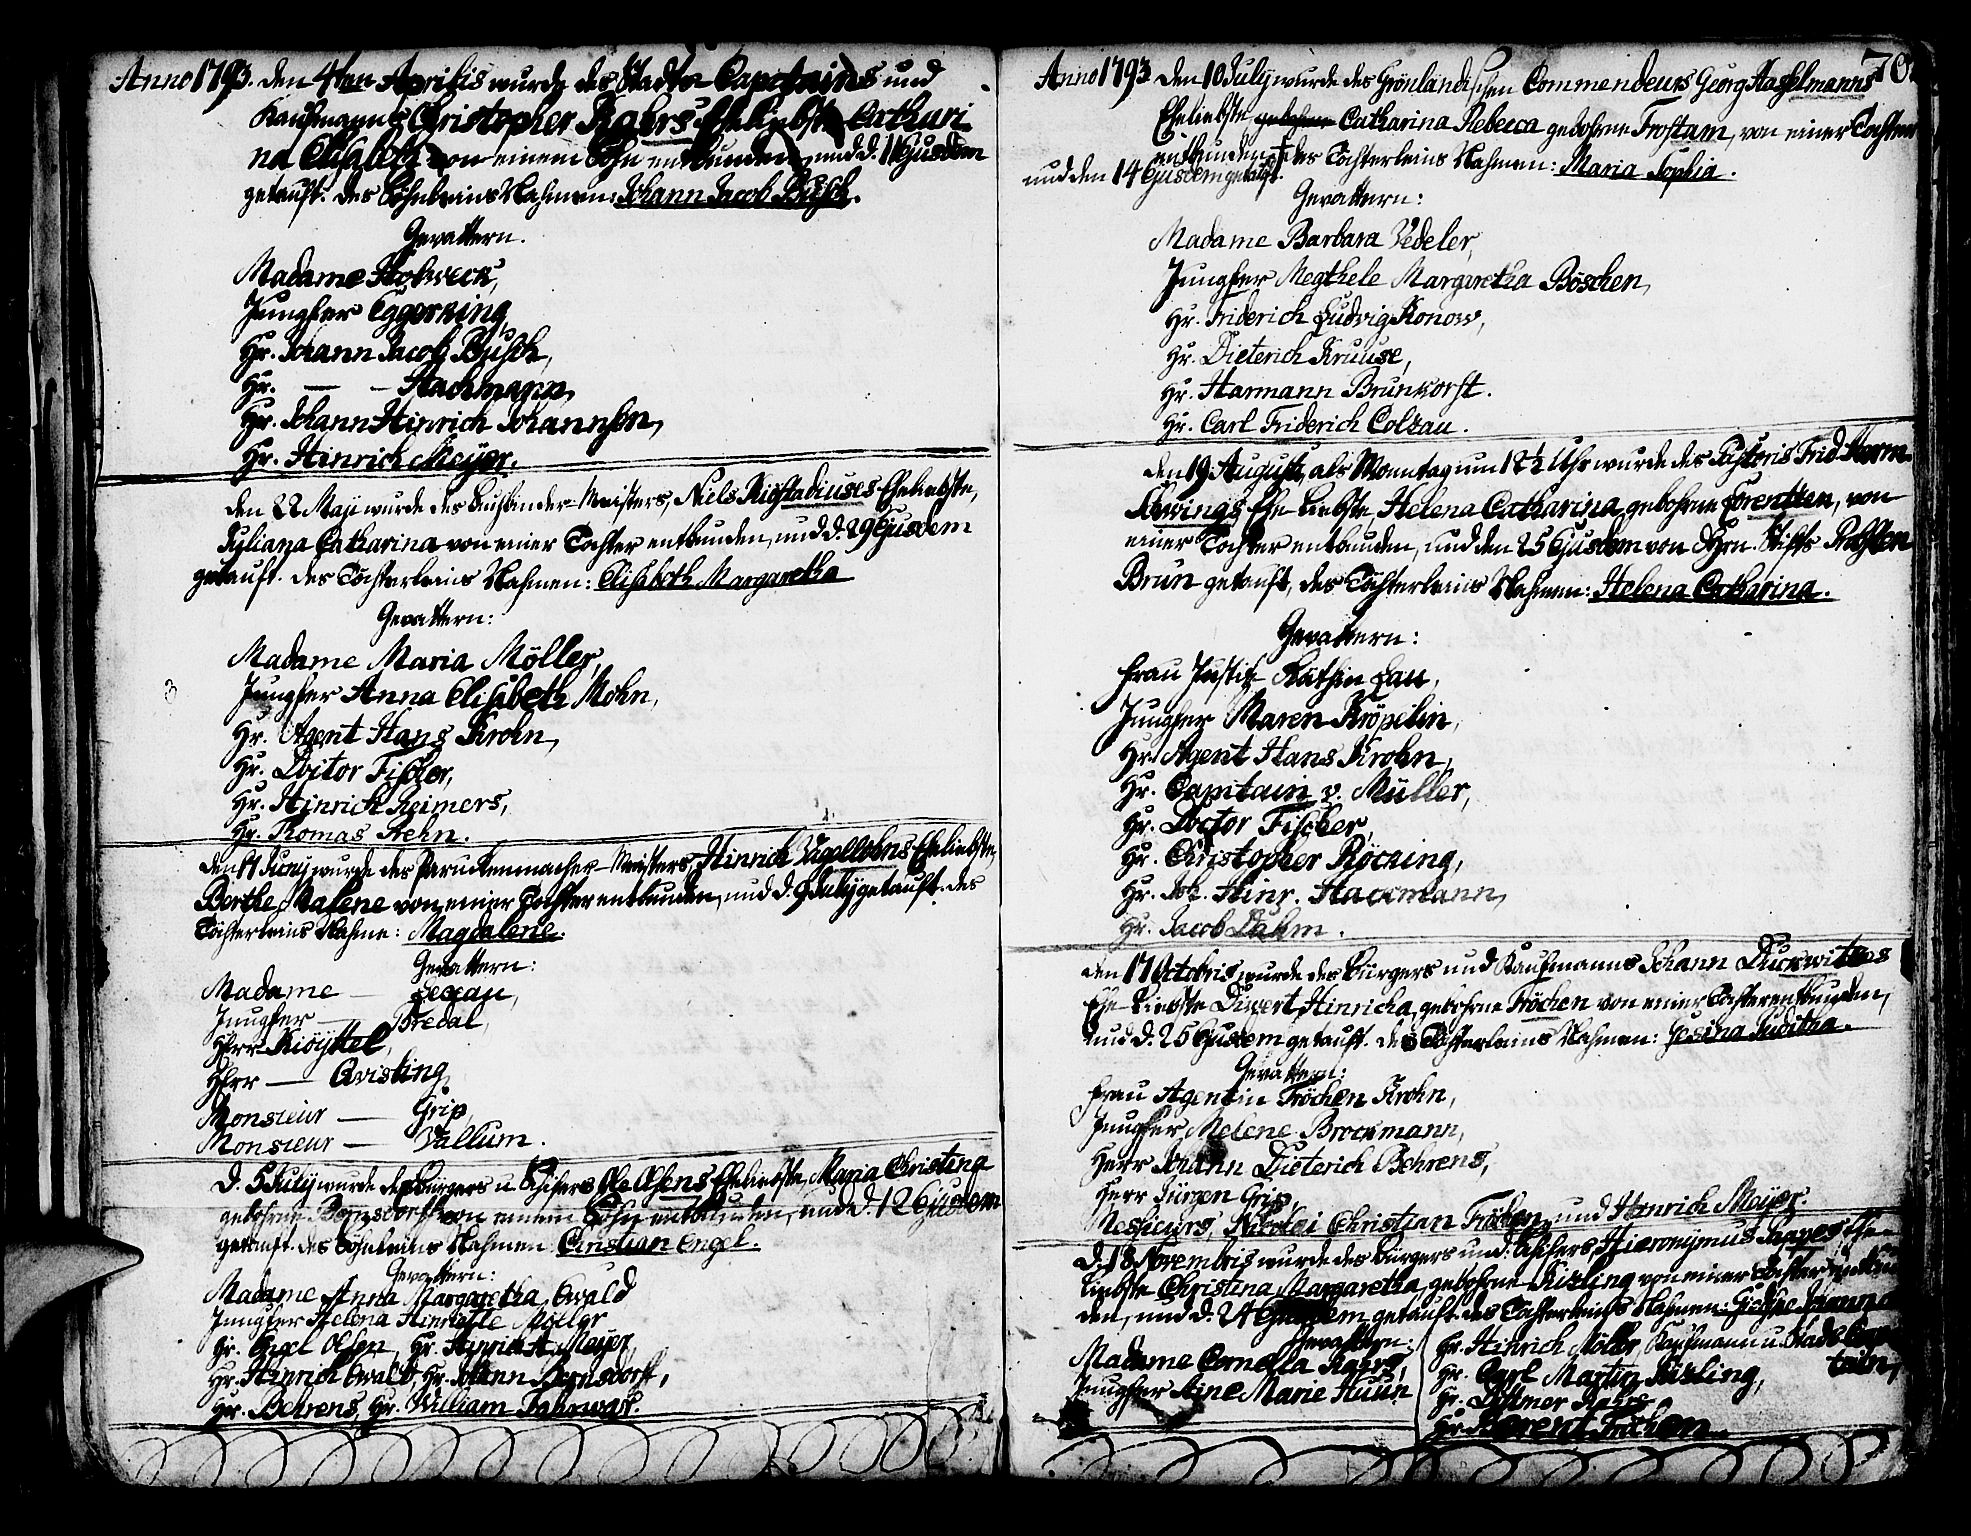 Anno 1793. den 4ten Aprilis wurde des Stadts Capitains und
Kaufmanns Christopher Kahrs Eheliebste Cathari-
na Elisabeth von einem Sohn entbunden, und d. 11 Ejusdem
getauft. des Söhnleins Nahmen: Johann Jacob Busch.
Gevattern.
Madame Holweck,
Jungfer Eggerking,
Hr. Johann Jacob Busch,
Hr. — — Hackmann,
Hr. Johann Hinrich Johannsen,
Hr. Hinrich Meyer.
den 22 Maji wurde des Buchbinder-Meisters, Niels Eheliebste,
Juliana Catharina von einer Tochter entbunden, und d. 29 Ejusdem
getauft. des Töchterleins Nahmen: Elisabeth Margaretha
Gevattern:
Madame Maria Möller,
Jungfer Anna Elisabeth Mohn,
Hr. Agent Hans Krohn,
Hr. Doctor Fischer,
Hr. Hinrich Reimers,
Hr. Thomas Prehn.
den 17 Juny wurde des Paruckenmacher-Meisters, Hinrich Eheliebste,
Berthe Malene von einer Tochter entbunden, und d. July getauft. des
Töchterleins Nahme: Magdalene.
Gevattern:
Madame — Lexau,
Jungfer — Bredal,
Herr Kiöyttel,
Herr — Qvisling,
Monsieur — Grip,
Monsieur — Vallum.
d. 5 July wurde des Bürgers u. Schifers Ole Olsens Eheliebste, Maria Christina
gebohrne Bernsdorf von einem Sohn entbunden, und d. 12 Ejusdem
getauft. des Söhnleins Nahmen: Christian Engel.
Gevattern:
Madame Anna Margaretha Ewald
Jungfer Helena Hinriette
Hr. Engel Olsen, Hr. Hinrich H. Meyer,
Hr. Hinrich Ewald, Hr. Johann Bernsdorf,
Hr. Behrens, Hr. William
70.
Anno 1793 den 10 July wurde des Grönländischen Commendeurs Georg Hasselmanns
Eheliebste, Catharina Rebecca gebohrne Frostam, von einer Tochter
entbunden + des Töchterleins Nahmen: Maria Sophia.
und den 14 Ejusdem getauft.
Gevattern:
Madame Barbara Vedeler,
Jungfer Megthele Margaretha Böschen,
Hr. Friderich Ludvig Konow,
Hr. Dieterich Kruuse,
Hr. Harmann Brunkorst.
Hr. Carl Friderich Coltzau.
den 19 August, als Montag um 12½ Uhr wurde des Pastoris Frid. Herm.
Ehe Liebste, Helena Catharina, gebohrne Lorentzen, von
einer Tochter entbunden, und den 25 Ejusdem von Hrn. Stifts Probsten
Brun getauft, des Töchterleins Nahmen: Helena Catharina.
Gevattern:
Frau Justitz Räthin Lau,
Jungfer Maren Kröpelin,
Hr. Agent Hans Krohn,
Hr. Capitain v. Müller,
Hr. Doctor Fischer,
Hr. Christopher Röcking,
Hr. Joh. Hinr. Hackmann,
Hr. Jacob Dahm.
den 17 Octobris wurde des Bürgers und Kaufmanns Johann Duckwitzes
Ehe Liebste Hinricha, gebohrne Fröchen von einer Tochter entbunden,
und d. 25 Ejusdem getauft. des Töchterleins Nahmen: Gesina Juditha.
Gevattern:
Frau Agentin Fröchen Krohn,
Jungfer Melene Brockmann,
Herr Johann Dieterich Behrens,
Herr Jürgen Grip,
Messieurs, Nicolai Christian Fröchen, und Hinrich Meyer.
D. 18 Novembris wurde des Bürgers und Schifers Hieronymus Ehe-
liebste Christina Margaretha, gebohrne Kisling von einer Tochter entbun-
den, und d. 24 Ejusdem getauft. des Töchterleins Nahmen:
Gevattern:
Madame Cornelia
Jungfer Aine Marie Huun
Hr. Hinrich Möller, Kaufmann u. Stads Capi-
tain,
Hr. Carl Martin Kisling,
Hr. Dittmer Kahrs
Hr. Berent Fröchen.